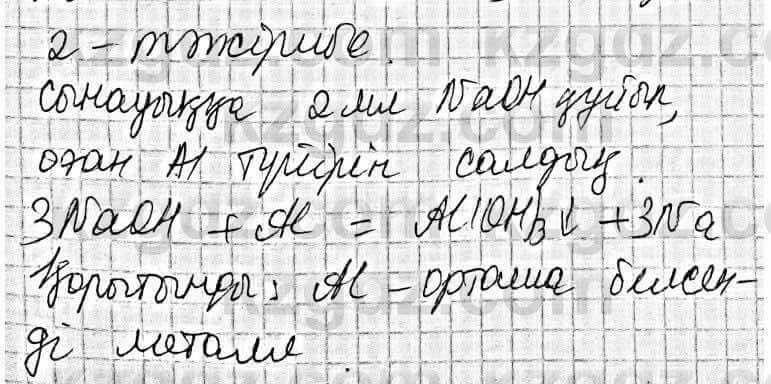 2 - тәжірибе.
Сынауыққа 2 мл NaOH құйып,
оған Al түйірін салдық.
3NaOH + Al = Al(OH)3↓ + 3Na
Қорытынды: Al - орташа белсен-
ді металл.